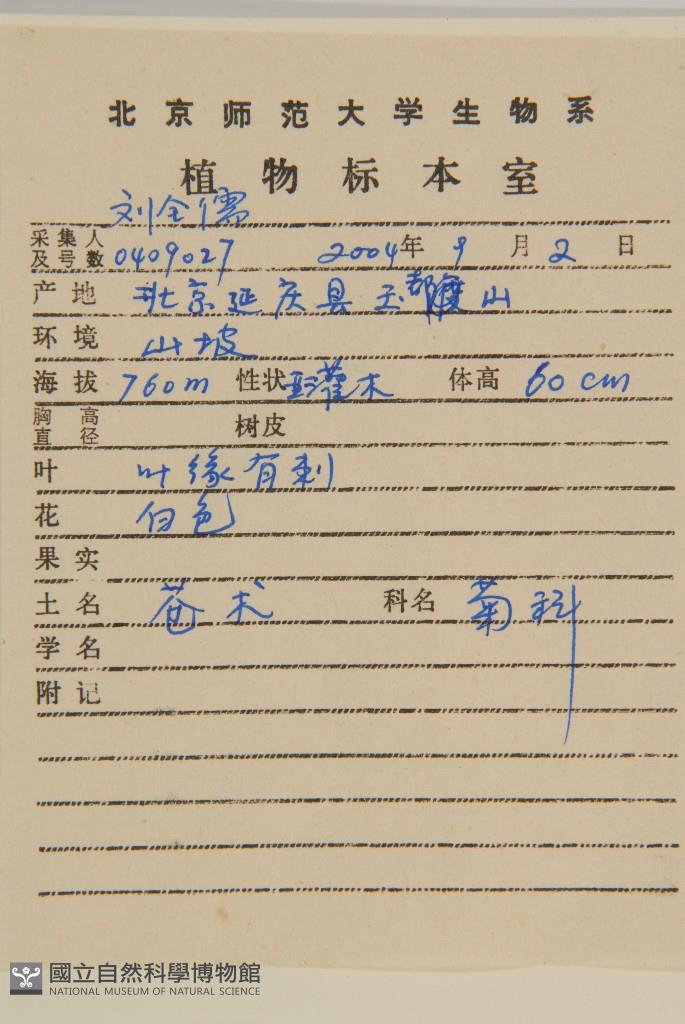 北京师范大学生物系
植物标本室
刘全儒
采集人及号数 0409027 2004年 9 月 2 日
产地 北京延庆县玉都山
环境 山坡
海拔 760m 性状 亚灌木 体高 60cm
胸高直径 树皮
叶 叶缘有刺
花 白色
果实
土名 苍术 科名 菊科
学名
附记
國立自然科學博物館
NATIONAL MUSEUM OF NATURAL SCIENCE